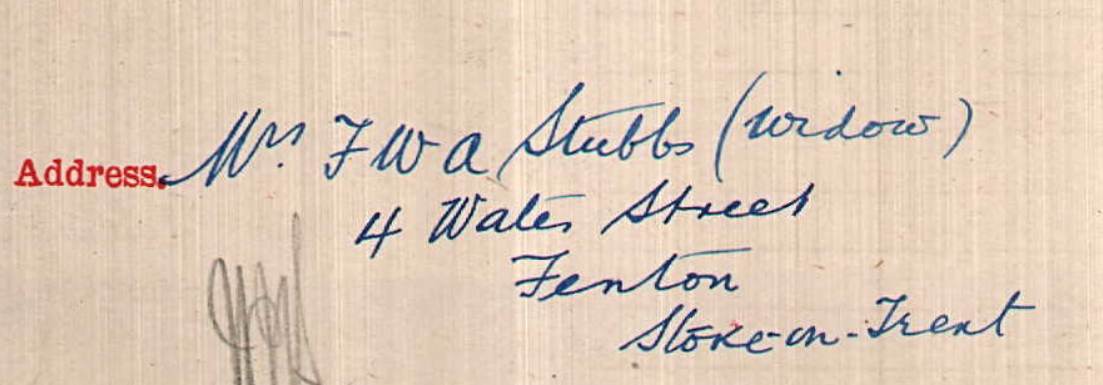 Address. Mrs. F W A Stubbs (widow)
4 Water Street
Fenton
Stoke-on-Trent